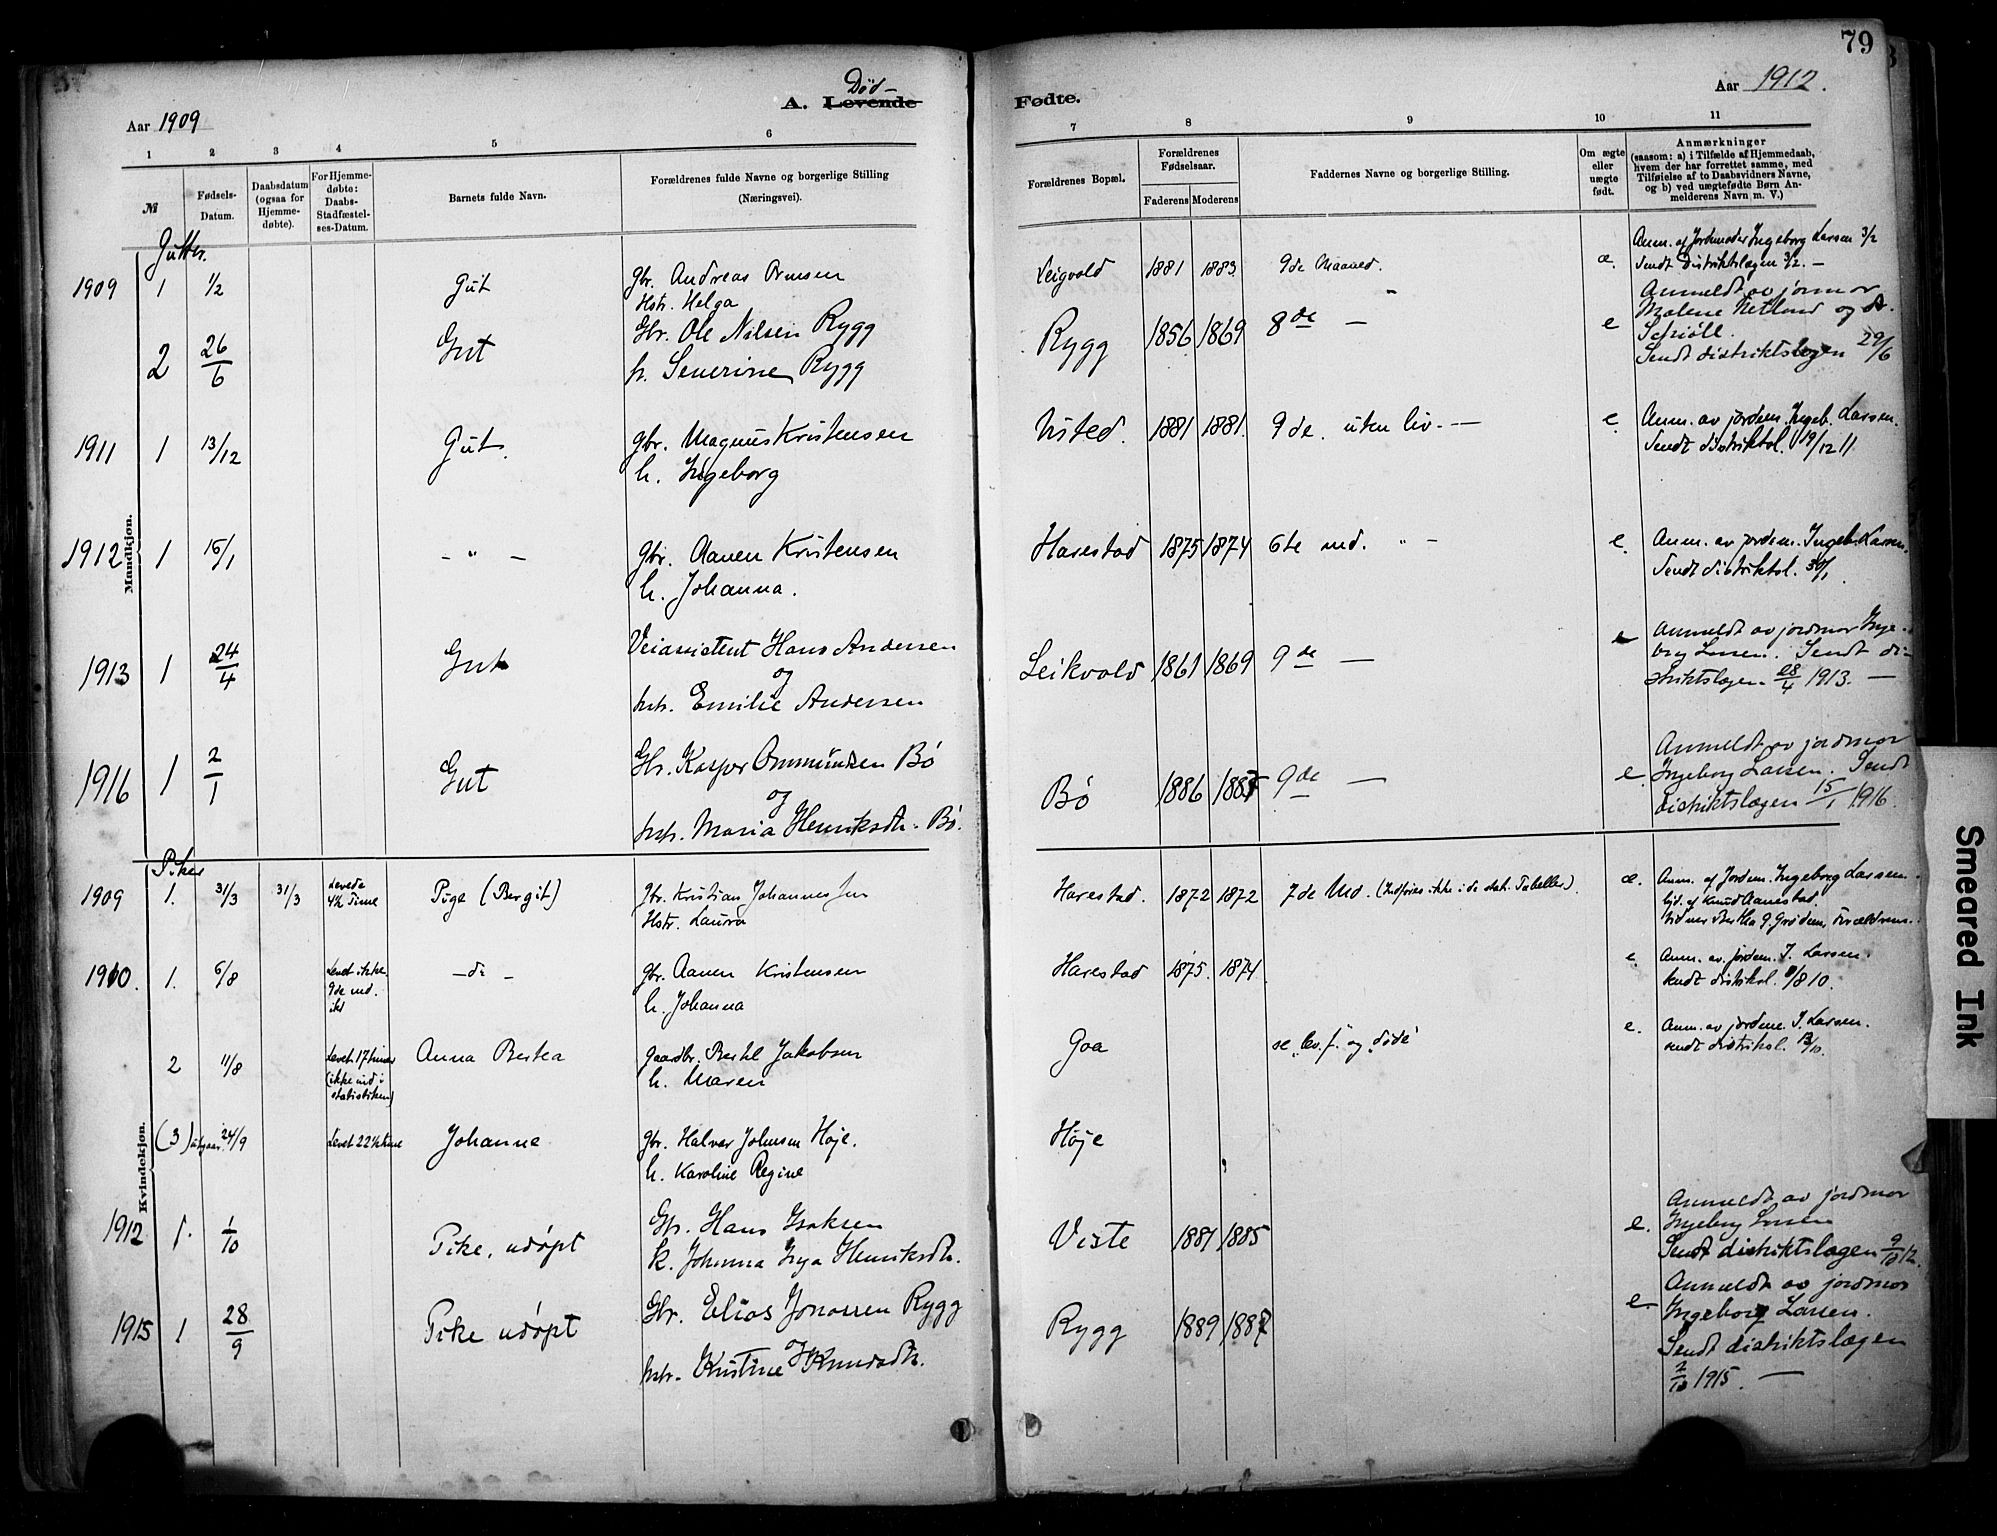 79
Død-
A. Levende
Fødte.
Aar 1909
Aar 1912.
1 2 3 4 5 6 7 8 9 10 11
№
Fødsels-
Datum.
Daabsdatum
(ogsaa for
Hjemme-
døbte).
For Hjemme-
døbte:
Daabs-
Stadfæstel-
ses-Datum.
Barnets fulde Navn.
Forældrenes fulde Navne og borgerlige Stilling
(Næringsvei).
Forældrenes Bopæl.
Forældrenes
Fødselsaar.
Faderens Moderens
Faddernes Navne og borgerlige Stilling.
Om ægte
eller
uægte
født.
Anmærkninger
(saasom: a) i Tilfælde af Hjemmedaab,
hvem der har forrettet samme, med
Tilføielse af to Daabsvidners Navne,
og b) ved uægtefødte Børn An-
melderens Navn m. V.)
Mandkjøn.
Gutter.
1909 1 1/2 Gut
gbr. Andreas Ormsen
Hstr. Helga
Leigvold 1881 1883 9de Maaned. æ.
Anm. af Jordmoder Ingeborg Larsen 3/2
Sendt Distriktslægen 3/2. —
2 26/6 Gut
Gbr. Ole Nilsen Rygg
h. Severine Rygg
Rygg 1856 1869 8de — " e
Anmeldt av jormor
Malene Netland og
Sendt distriktslægen 29/6
1911 1 13/12 Gut.
gbr. Magnus Kristensen
h. Ingeborg
Visted. 1881 1881. 9de. uten liv. — e.
Anm. av jordem. Ingeb. Larsen.
Sendt distriktsl. 19/12 11.
1912 1 15/1 - " -
gbr. Aanen Kristensen
h. Johanna.
Harestad 1875 1874 6te md. " - e.
Anm. av jordem. Ingeb. Larsen.
Sendt distriktsl. 30/1.
1913 1 24/4 Gut
Veiassistent Hans Andersen
og
hstr. Emilie Andersen
Leikvold 1861 1869 9de — e
Anmeldt av jordmor Inge-
borg Larsen. Sendt di-
striktslægen 28/4 1913. —
1916 1 2/1 Gut
Gbr. Kasper Ommundsen Bø
og
hstr. Maria Henriksdtr. Bø.
Bø 1886 1887 9de — e
Anmeldt av jordmor
Ingeborg Larsen. Sendt
distriktslægen 15/1 1916.
Kvindekjøn.
Piker
1909 1. 31/3 31/3
Levede
4½ Time
Pige (Bergit)
gbr. Kristian Johannessen
Hstr. Laura
Harestad. 1872 1872 7de Md. (Indføres ikke i de stat. Tabeller). æ.
Anm. af Jordm. Ingeborg Larsen.
hjd. af Knud Aanestad.
Vidner Bertha G. Grødem, Forældrene.
1910. 1. 6/8
Levet ikke
9de md.
- do -
gbr. Aanen Kristensen
h. Johanna
Harestad 1875. 1874. e.
Anm. av. jordem. I. Larsen.
sendt distriksl. 9/8 10.
2 11/8
Levet 17 timer
(ikke ind i
statistiken)
Anna Bertea
gaardbr. Bertel Jakobsen
h. Maren
Goa se „lev. f. og „døde" e.
Anm. av jordem. I. Larsen.
sendt distriksl. 13/10.
(3) utgaar. 24/9 Levet 22½ time Johanne
gbr. Halvar Johnsen Høje.
h. Karoline Regine
Høje
1912 1. 1/10 Pike, udøpt
Gbr. Hans Isaksen
k. Johanna Inga Henriksdtr.
Viste 1881 1885 e.
Anmeldt av jordmor
Ingeborg Larsen
Sendt distriktslægen 9/10 12.
1915 1 28/9 Pike udøpt
Gbr. Elias Jonassen Rygg
og
hstr. Kristine Knudsdtr.
Rygg 1889 1887 e.
Anmeldt av jordmor
Ingeborg Larsen.
Sendt distriktslægen
2/10 1915. —
Smeared Ink